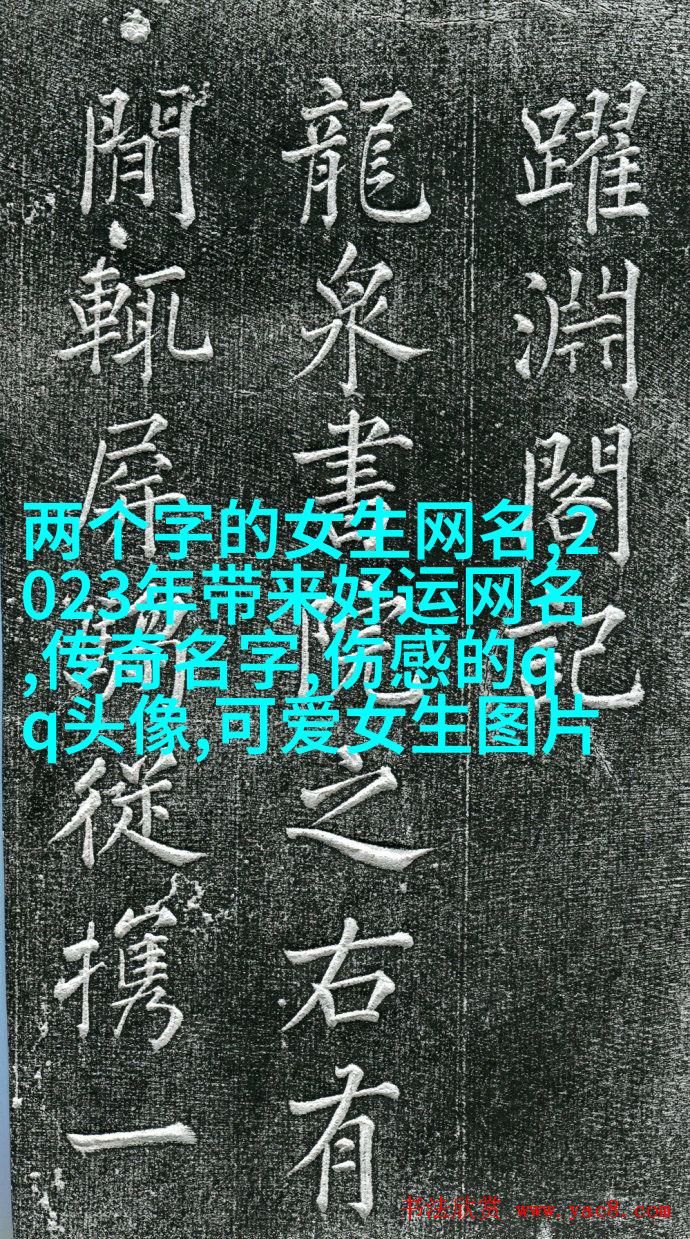 躍淵閣記
龍泉書院之右有
閒輒屏從攜一
两个字的女生网名,2
023年带来好运网名
,传奇名字,伤感的q
q头像,可爱女生图片
书法欣赏 www.yac8.com